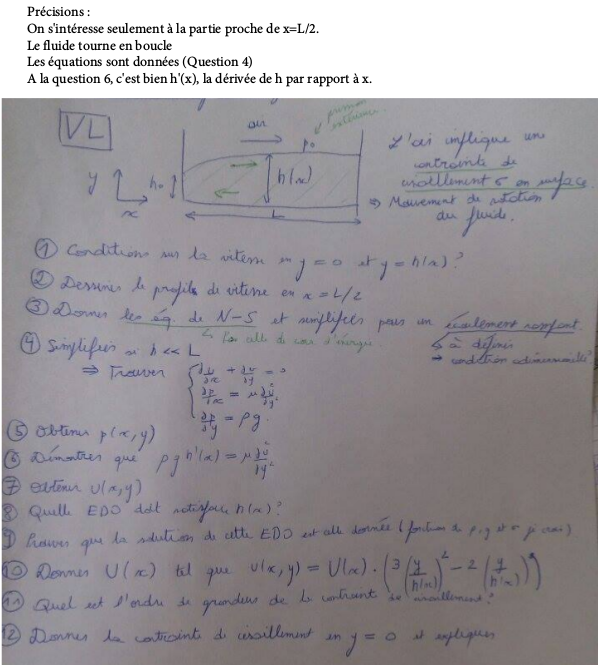 Précisions :
On s'intéresse seulement à la partie proche de x=L/2.
Le fluide tourne en boucle
Les équations sont données (Question 4)
A la question 6, c'est bien h'(x), la dérivée de h par rapport à x.
VL
air
pression extérieure
p₀
y
x
h₀
h(x)
L
L'air implique une
contrainte de
cisaillement σ en surface
⇒ Mouvement de rotation
du fluide.
① Conditions sur la vitesse en y = 0 et y = h(x) ?
② Dessiner le profil de vitesse en x = L/2
③ Donner les éq. de N-S et simplifier pour un écoulement rampant.
↳ Pas celle de cons d'énergie
↳ à définir
→ condition adimensionnelle ?
④ Simplifier si h << L
⇒ Trouver { ∂u/∂x + ∂v/∂y = 0
∂p/∂x = μ ∂²u/∂y²
∂p/∂y = ρg.
⑤ Obtenir p(x,y)
⑥ Démontrer que ρ g h'(x) = μ ∂²u/∂y²
⑦ Obtenir U(x,y)
⑧ Quelle EDO doit satisfaire h(x) ?
⑨ Trouver que la solution de cette EDO est donnée (fonction de ρ, g et σ je crois)
⑩ Donner U(x) tel que u(x,y) = U(x) · (3 (y/h(x))² − 2 (y/h(x)))
⑪ Quel est l'ordre de grandeur de la contrainte de cisaillement ?
⑫ Donner la contrainte de cisaillement en y = 0 et expliquer